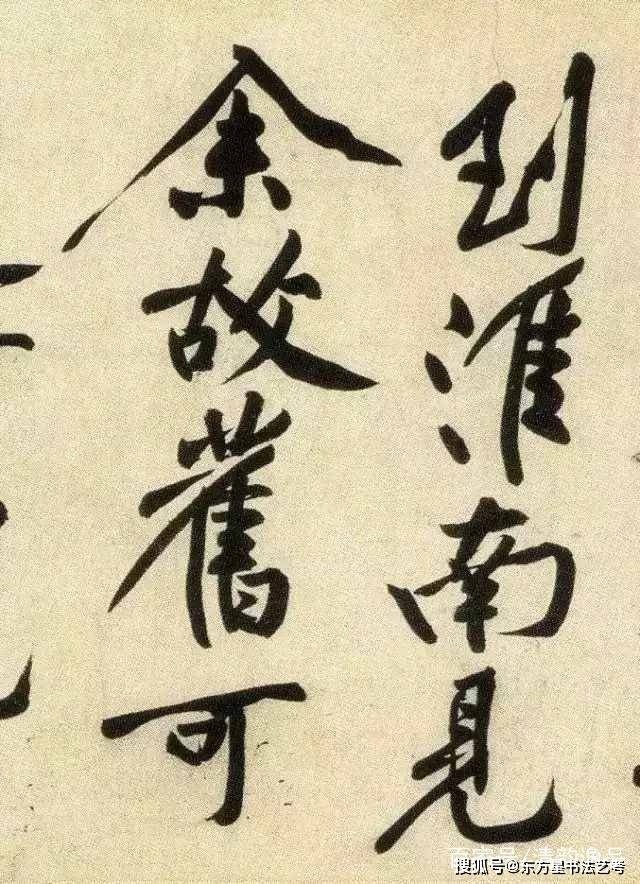 到淮南見
余故舊可
搜狐号@东方星书法艺考